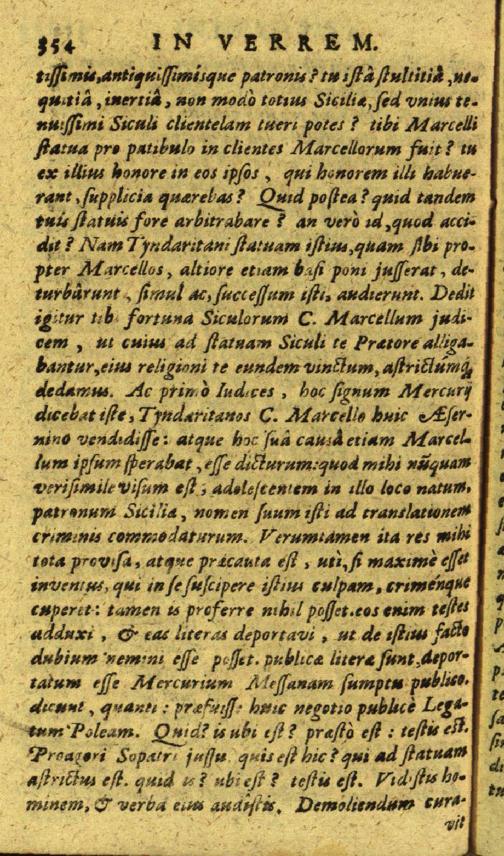 354 IN VERREM.
tissimis, antiquissimísque patronis? tu istâ stultitiâ, ne-
quitiâ, inertiâ, non modò totius Siciliæ, sed vnius te-
nuissimi Siculi clientelam tueri potes? tibi Marcelli
statua pro patibulo in clientes Marcellorum fuit? tu
ex illius honore in eos ipsos, qui honorem illi habue-
rant, supplicia quærebas? Quid postea? quid tandem
tuis statuis fore arbitrabare? an verò id, quod acci-
dit? Nam Tyndaritani statuam istius, quam sibi pro-
pter Marcellos, altiore etiam basi poni jusserat, de-
turbârunt, simul ac, successum isti, audierunt. Dedit
igitur tibi fortuna Siculorum C. Marcellum judi-
cem, ut cuius ad statuam Siculi te Prætore alliga-
bantur, eius religioni te eundem vinctum, astrictúmq́;
dedamus. Ac primò Iudices, hoc signum Mercurij
dicebat iste, Tyndaritanos C. Marcello huic Æser-
nino vendidisse: atque hoc suâ causâ etiam Marcel-
lum ipsum sperabat, esse dicturum: quod mihi nũquam
verisimile visum est, adolescentem in illo loco natum,
patronum Siciliæ, nomen suum isti ad translationem
criminis commodaturum. Verumtamen ita res mihi
tota provisa, atque præcauta est, utì, si maximè esset
inventus, qui in se suscipere istius culpam, criménque
cuperet: tamen is proferre nihil posset. eos enim testes
adduxi, & eas literas deportavi, ut de istius facto
dubium nemini esse posset. publicæ literæ sunt, depor-
tatum esse Mercurium Messanam sumptu publico.
dicunt, quanti: præfuisse huic negotio publicè Lega-
tum Poleam. Quid? is ubi est? præstò est: testis est.
Proagori Sopatri jussu. quis est hic? qui ad statuam
astrictus est. quid is? ubi est? testis est. Vidistis ho-
minem, & verba eius audistis. Demoliendum cura-
vit